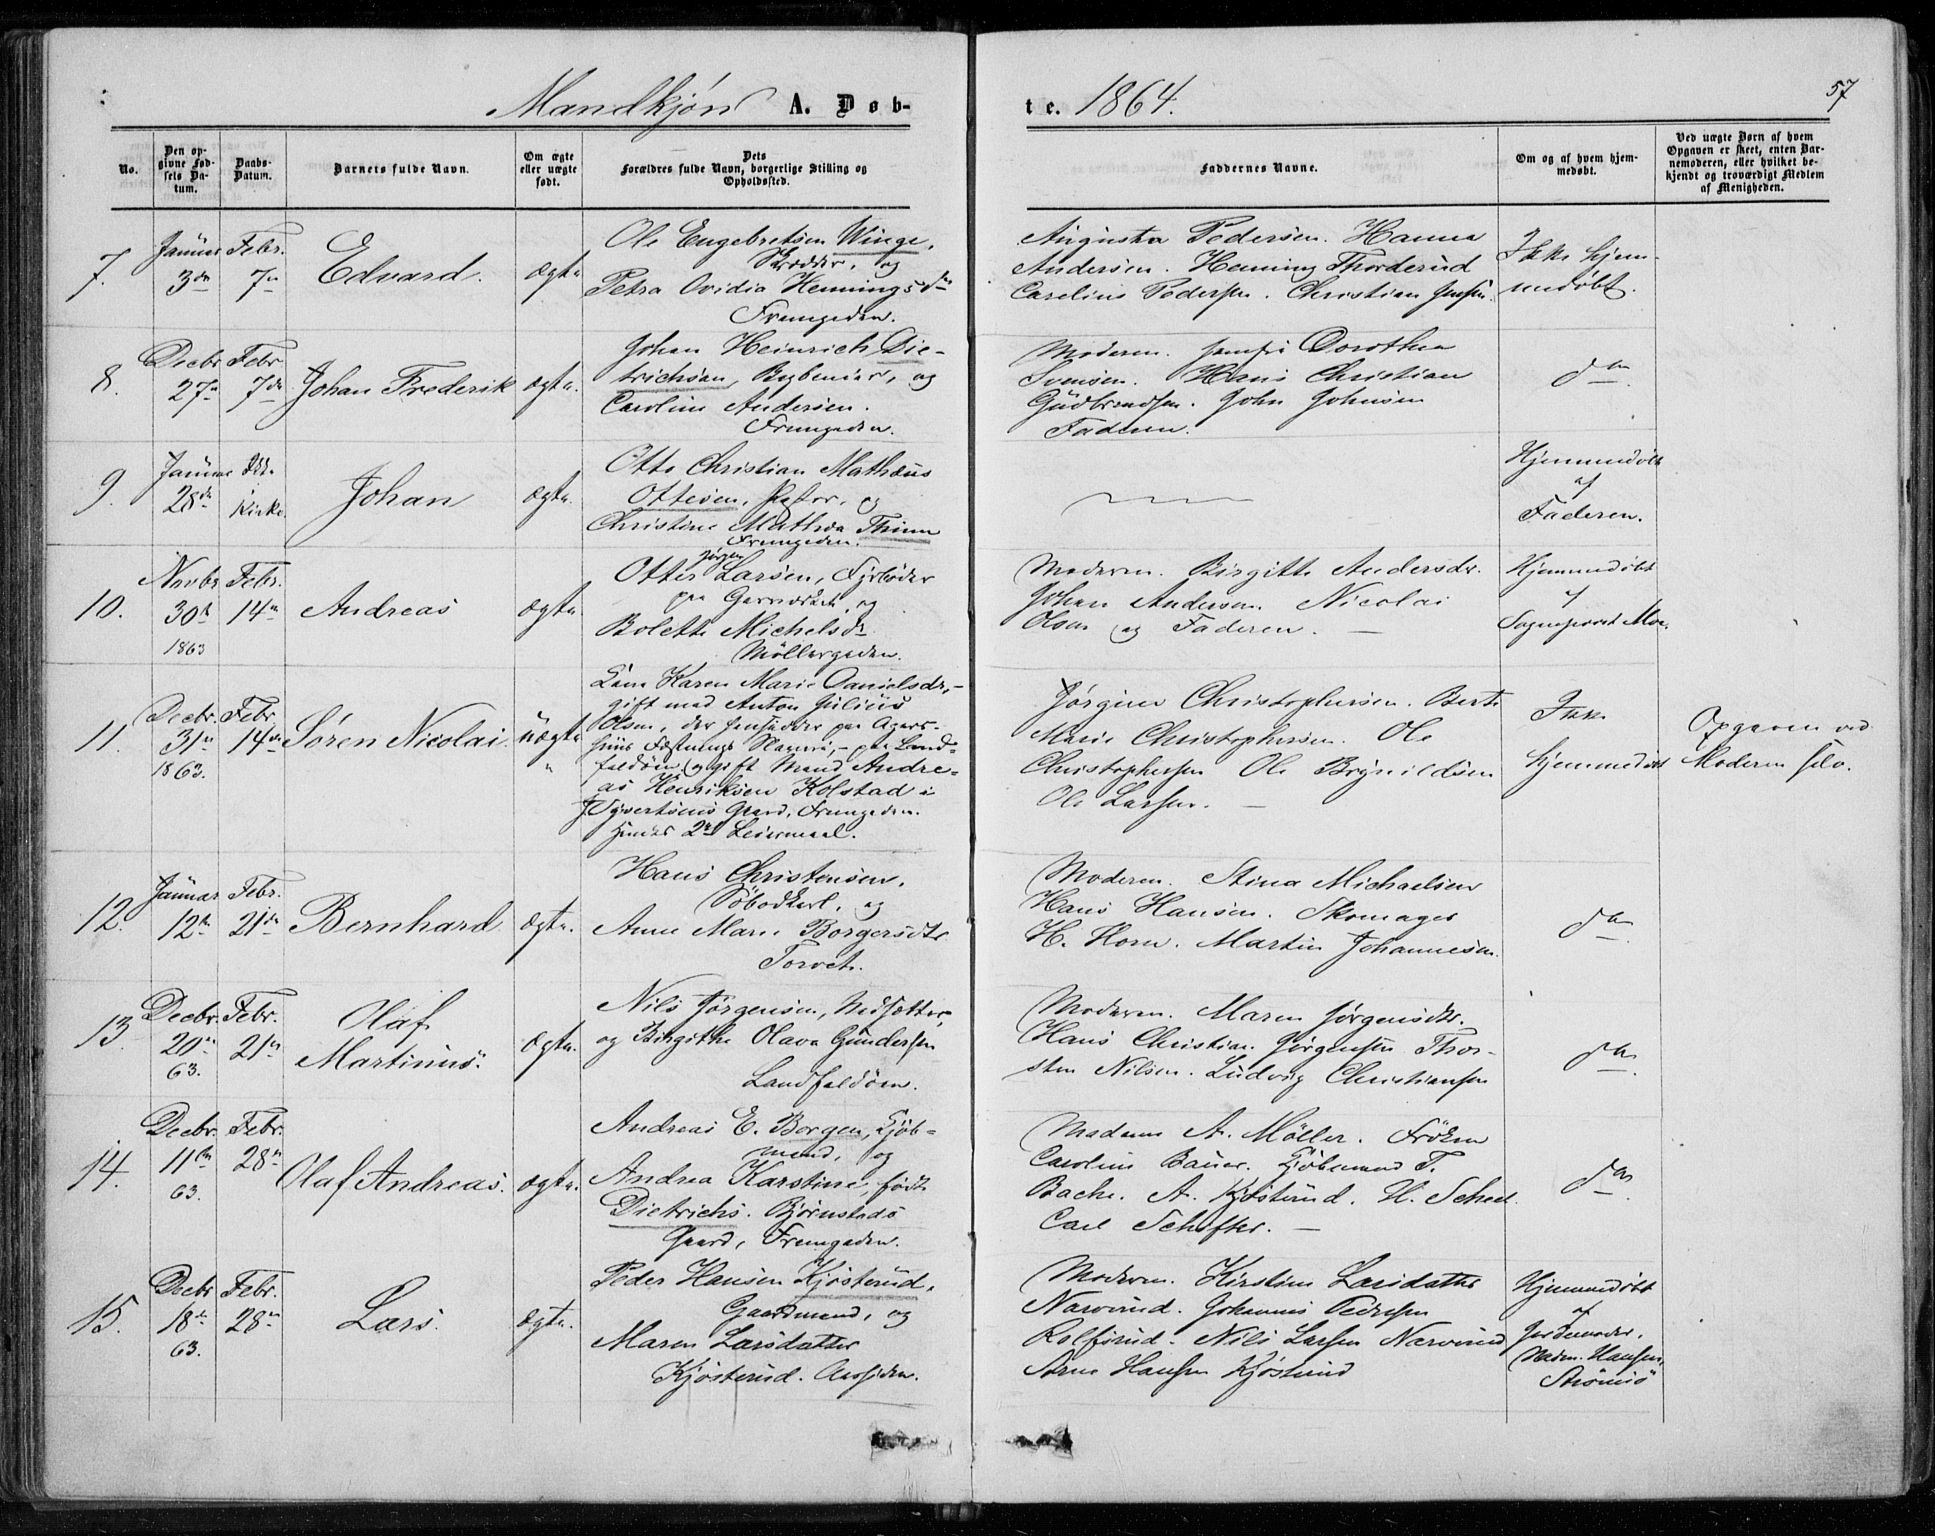 Mandkjön A. Döb-
te. 1864.
57
No.
Den op-
givne Fød-
sels Da-
tum.
Daabs-
Datum.
Barnets fulde Navn.
Om ægte
eller uægte
født.
Dets
Forældres fulde Navn, borgerlige Stilling og
Opholdssted.
Faddernes Navne.
Om og af hvem hjem-
medøbt.
Ved uægte Børn af hvem
Opgaven er skeet, enten Bar-
nemoderen, eller hvilket be-
kjendt og troværdigt Medlem
af Menigheden.
7.
Januar
3die
Febr.
7de
Edvard.
ægte
Ole Engebretsen Winge,
Skrædder, og
Petra Ovidia Hennings dtr
Fremgaden.
Augusta Pedersen. Hanna
Andersen. Henning Thorderud
Carelius Pedersen. Christian Jensen.
Ikke hjem-
medöbt.
8.
Decbr
27de
Febr.
7de
Johan Frederik
ægte.
Johan Heinrich Die-
trichsen, Bygbenier, og
Caroline Andersen.
Fremgaden.
Moderen. Jomfru Dorothea
Svensen. Hans Christian
Gudbrandsen. John Johnsen
Faderen.
do
9.
Januar
28de
Ikke
i Kirke.
Johan
ægte.
Otto Christian Mathæus
Ottesen, Pastor, og
Christine Mathea Thinn
Fremgaden.
Hjemmedöbt
af
Faderen.
10.
Novbr
30te
1863
Febr.
14de
Andreas
ægte.
Jörgen
Otter Larsen, Fyrböder
paa Gasværket, og
Bolette Michelsdr
Möllergaden.
Moderen. Birgitte Andersdr.
Johan Andersen. Nicolai
Olsen og Faderen. —
Hjemmedöbt
af
Sognepræst Moe.
11.
Decbr.
31te
1863.
Febr
14de
Sören Nicolai.
uægte
Karen Marie Danielsdr, —
gift med Anton Julius
Olsen, der hensidder paa Agers-
huus Fæstnings Slaveri, — paa Land-
faldöen og gift Mand Andre-
as Henriksen Kolstad i
Syvertsens Gaard, Fremgaden.
Hendes 2det Leiermaal.
Jörgine Christophersen. Berte
Marie Christophersen. Ole
Christophersen Ole Brynildsen
Ole Larsen. —
Ikke
hjemmedöbt
Opgaven ved
Moderen selv.
12.
Januar
12te
Febr.
21de
Bernhard
ægte.
Hans Christensen,
Söbodkarl, og
Anne Marie Borgersdtr
Torvet.
Moderen. Stina Michaelsen
Hans Hansen. Skomager
H. Horn. Martin Johannesen.
do
13
Decbr.
20de
63.
Febr.
21de
Olaf
Martinius.
ægte.
Nils Jörgensen, Nedsætter,
og Birgithe Olava Gundersen
Landfaldöen.
Moderen. Maren Jörgensdtr.
Hans Christian Jörgensen Thor-
sten Nilsen. Ludvig Christiansen
do
14.
Decbr.
11te
63.
Febr.
28de
Olaf Andreas.
ægte.
Andreas E. Borgen, Kjöb-
mand, og
Andrea Karstine, födt
Dietrichs. Björnstads
Gaard, Fremgaden.
Madame A. Möller. Fröken
Caroline Bauer. Kjöbmand T.
Bache. A. Kjösterud. H. Scheel
Carl Schefter. —
do
15.
Decbr
18de
63.
Febr.
28de
Lars.
ægte.
Peder Hansen Kjösterud,
Gaardmand, og
Maren Larsdatter
Kjösterud. Aassiden.
Moderen. Kirstine Larsdatter
Narverud. Johannes Pedersen
Rolfsrud. Nils Larsen Narverud
Arne Hansen Kjösterud
Hjemmedöbt
af
Jordemoder,
Madm. Hansen,
Strömsö